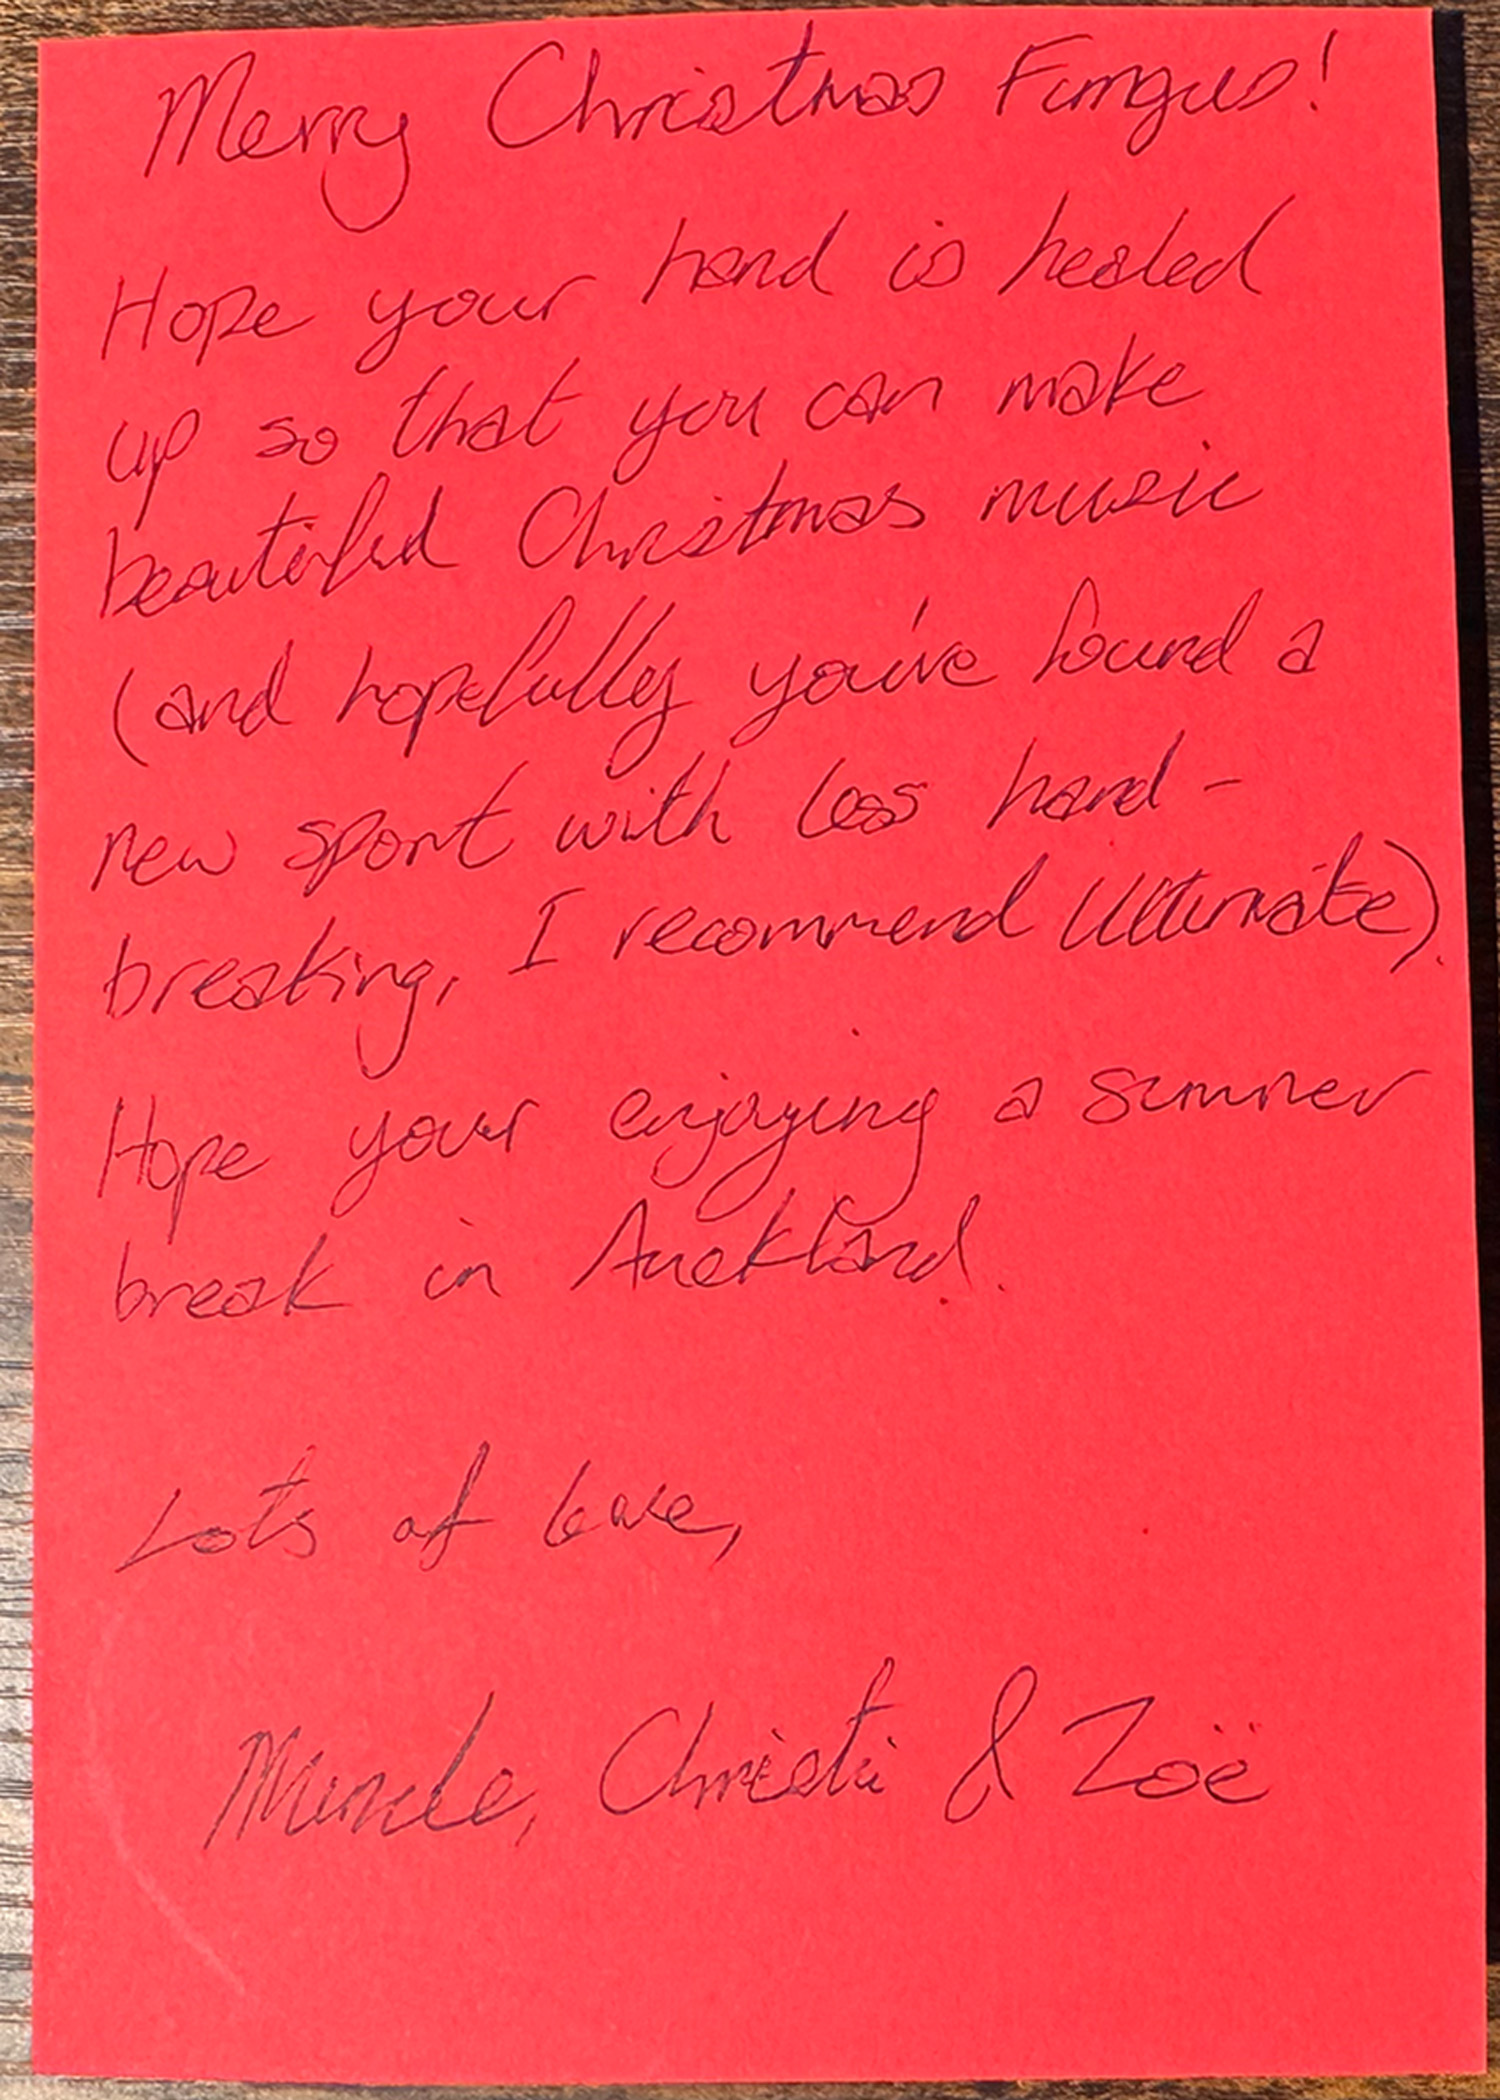 Merry Christmas Fungus!
Hope your hand is healed
up so that you can make
beautiful Christmas music
(and hopefully you've found a
new sport with less hand-
breaking, I recommend Ultimate).
Hope your enjoying a summer
break in Auckland.
Lots of love,
Muncle, Christi & Zoë